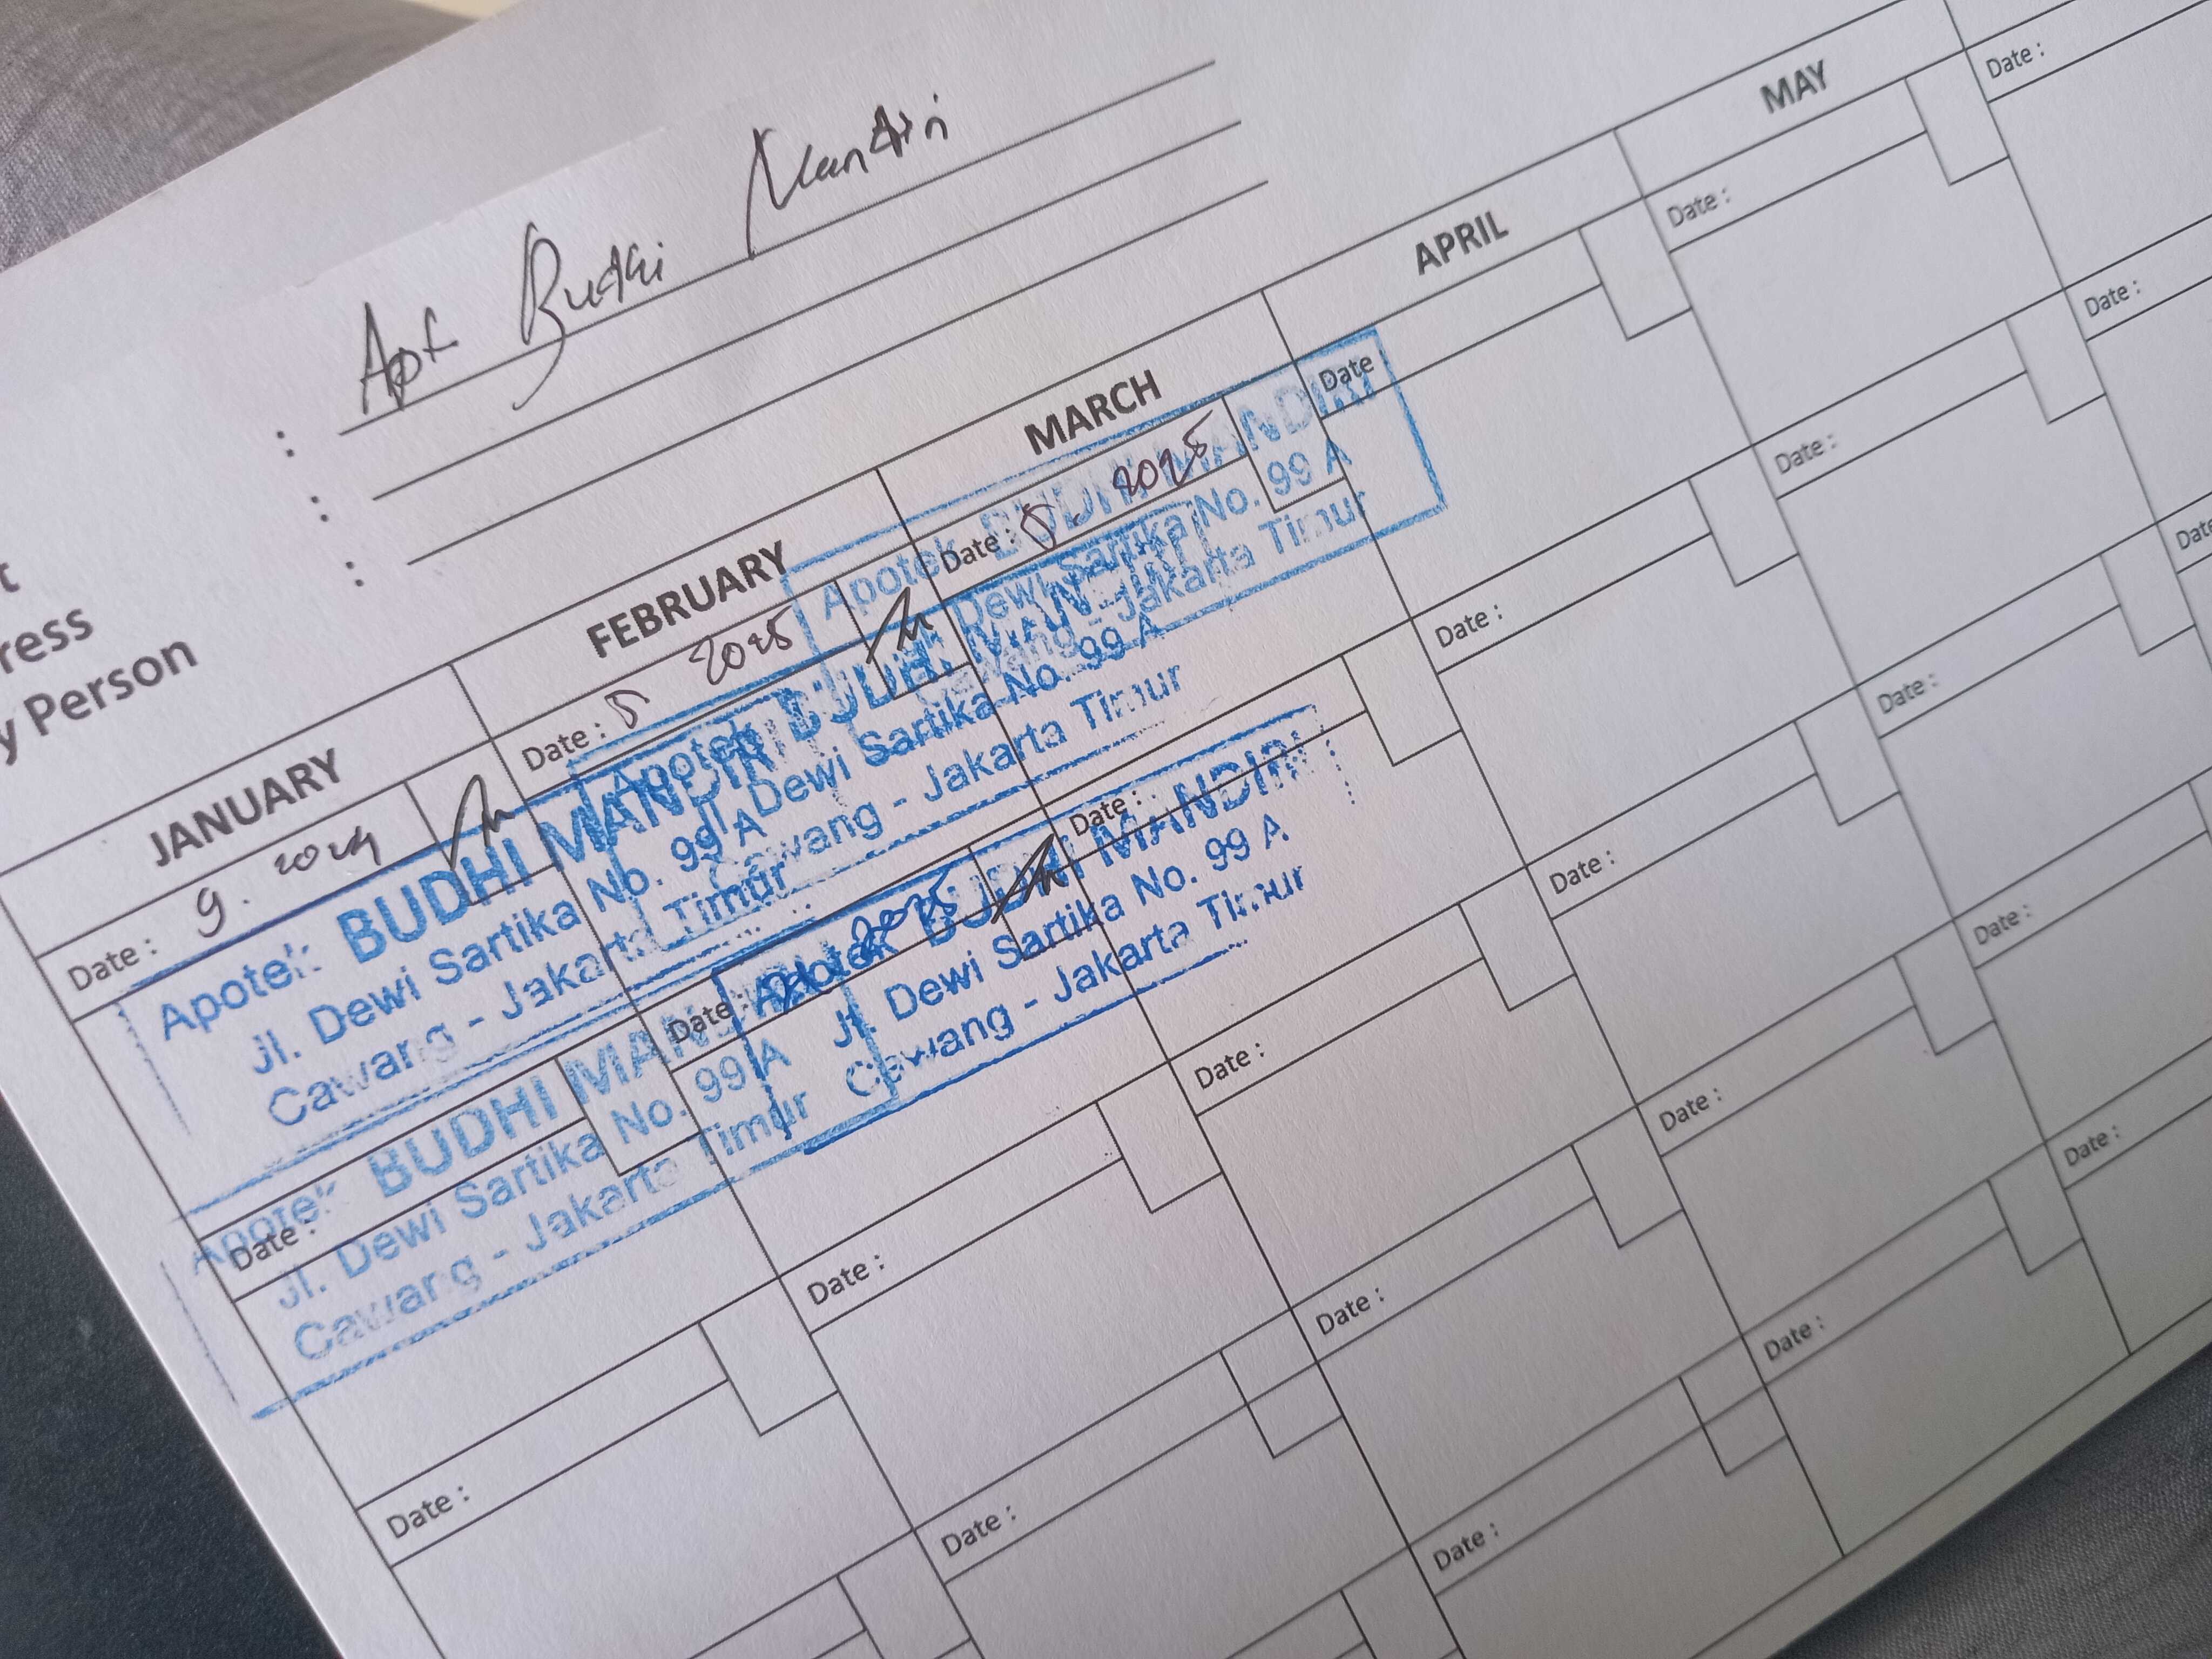 Apt Budhi Mandiri
:
t
:
ress
:
y Person
JANUARY
FEBRUARY
MARCH
APRIL
MAY
Date : 9. 2024
Date : 5 2025
Date : 5. 2025
Date
Date :
Date :
Apotek BUDHI MANDIRI
Jl. Dewi Sartika No. 99 A
Cawang - Jakarta Timur
Apotek BUDHI MANDIRI
Jl. Dewi Sartika No. 99 A
Cawang - Jakarta Timur
Apotek BUDHI MANDIRI
Dewi Sartika No. 99 A
Cawang - Jakarta Timur
Date :
Date : 2025
Date :
Date :
Date :
Date :
Apotek BUDHI MANDIRI
Jl. Dewi Sartika No. 99 A
Cawang - Jakarta Timur
Apotek BUDHI MANDIRI
Jl. Dewi Sartika No. 99 A
Cawang - Jakarta Timur
Date :
Date :
Date :
Date :
Date :
Date
Date :
Date :
Date :
Date :
Date :
Date :
Date :